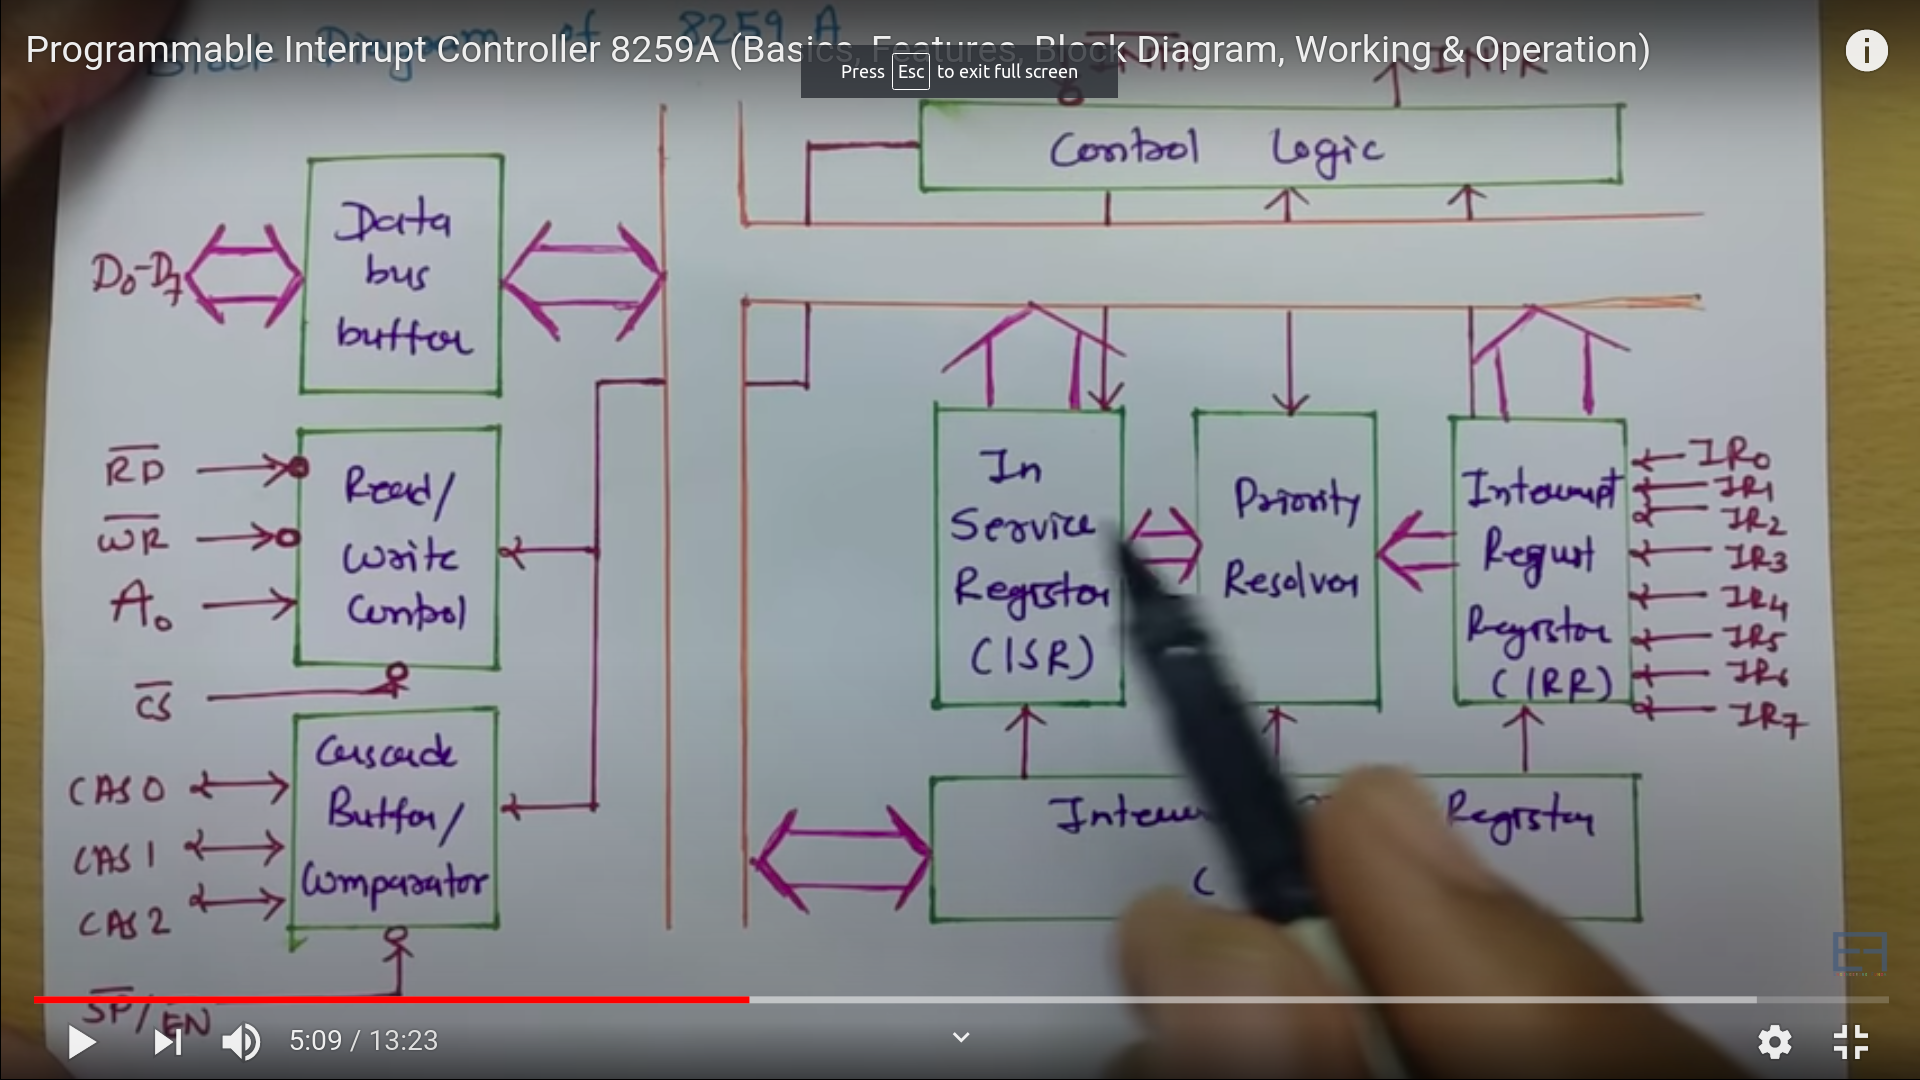 Block Diagram of 8259A
Programmable Interrupt Controller 8259A (Basics, Features, Block Diagram, Working & Operation)
Press Esc to exit full screen
INTR
Control Logic
Data
bus
buffer
D0-D7
RD
WR
A0
CS
Read/
Write
Control
Cascade
Buffer/
Comparator
CAS 0
CAS 1
CAS 2
SP/EN
In
Service
Register
(ISR)
Priority
Resolver
Interrupt
Request
Register
(IRR)
IR0
IR1
IR2
IR3
IR4
IR5
IR6
IR7
Register
(
5:09 / 13:23